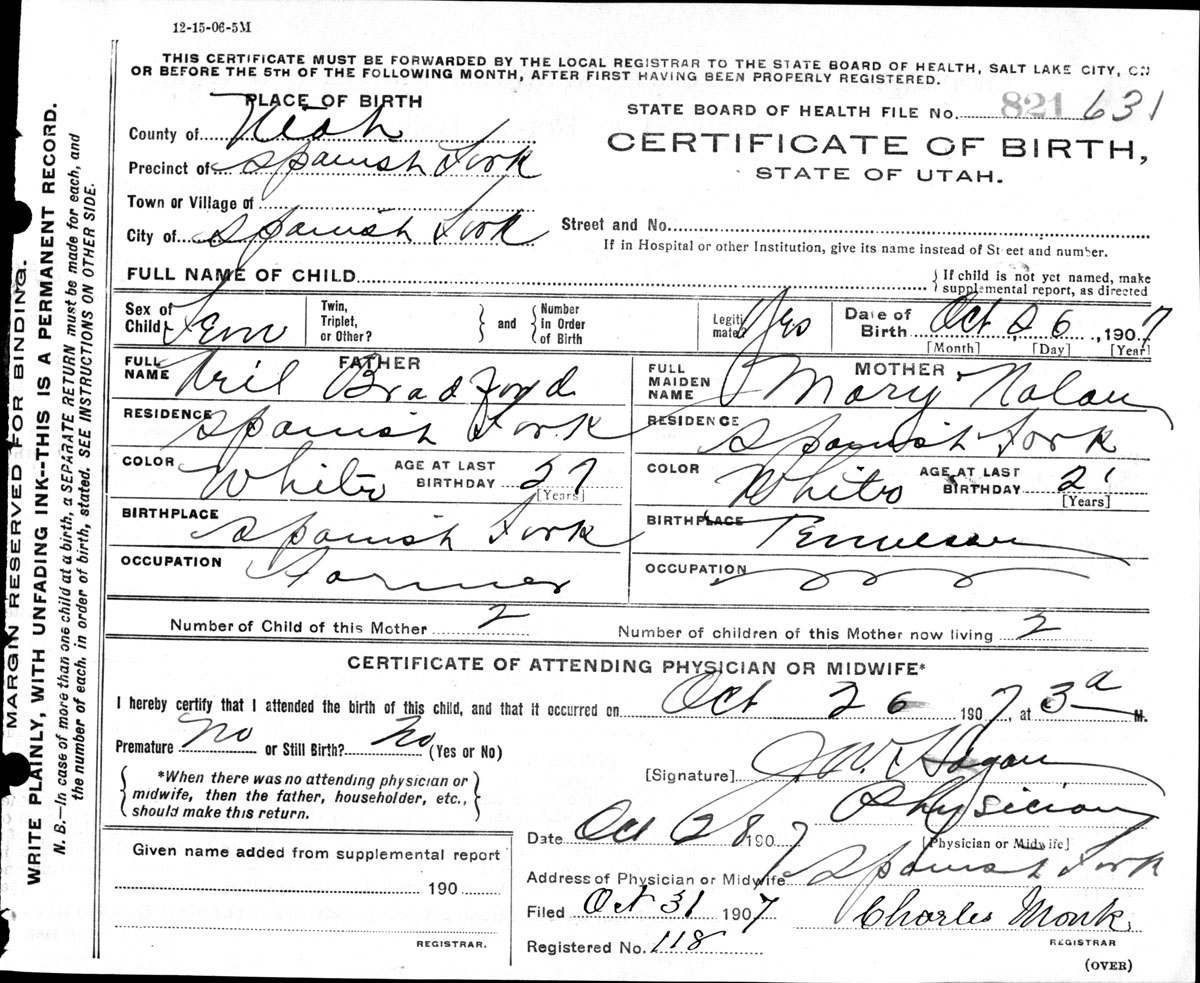 12-15-06-5M
THIS CERTIFICATE MUST BE FORWARDED BY THE LOCAL REGISTRAR TO THE STATE BOARD OF HEALTH, SALT LAKE CITY, ON
OR BEFORE THE 5TH OF THE FOLLOWING MONTH, AFTER FIRST HAVING BEEN PROPERLY REGISTERED.
PLACE OF BIRTH
STATE BOARD OF HEALTH FILE No. 821 631
County of Utah
CERTIFICATE OF BIRTH,
Precinct of Spanish Fork
STATE OF UTAH.
Town or Village of
City of Spanish Fork
Street and No.
If in Hospital or other Institution, give its name instead of Street and number.
FULL NAME OF CHILD
If child is not yet named, make
supplemental report, as directed
Sex of Child Fem
Twin, Triplet, or Other?
and
Number in Order of Birth
Legitimate? Yes
Date of Birth Oct 26, 1907
[Month] [Day] [Year]
FATHER
FULL NAME Bradford
RESIDENCE Spanish Fork
COLOR White AGE AT LAST BIRTHDAY 27
[Years]
BIRTHPLACE Spanish Fork
OCCUPATION Farmer
MOTHER
FULL MAIDEN NAME Mary Nolan
RESIDENCE Spanish Fork
COLOR White AGE AT LAST BIRTHDAY 21
[Years]
BIRTHPLACE Tennessee
OCCUPATION
Number of Child of this Mother 2
Number of children of this Mother now living 2
CERTIFICATE OF ATTENDING PHYSICIAN OR MIDWIFE*
I hereby certify that I attended the birth of this child, and that it occurred on Oct 26 1907, at 3 a M.
Premature No or Still Birth? No (Yes or No)
*When there was no attending physician or
midwife, then the father, householder, etc.,
should make this return.
[Signature] J. W. Hagan
Physician
Date Oct 28 1907
[Physician or Midwife]
Given name added from supplemental report
190
REGISTRAR.
Address of Physician or Midwife Spanish Fork
Filed Oct 31 1907
Charles Monk
Registered No. 118
REGISTRAR
(OVER)
MARGIN RESERVED FOR BINDING.
WRITE PLAINLY, WITH UNFADING INK--THIS IS A PERMANENT RECORD.
N. B.—In case of more than one child at a birth, a SEPARATE RETURN must be made for each, and
the number of each, in order of birth, stated. SEE INSTRUCTIONS ON OTHER SIDE.